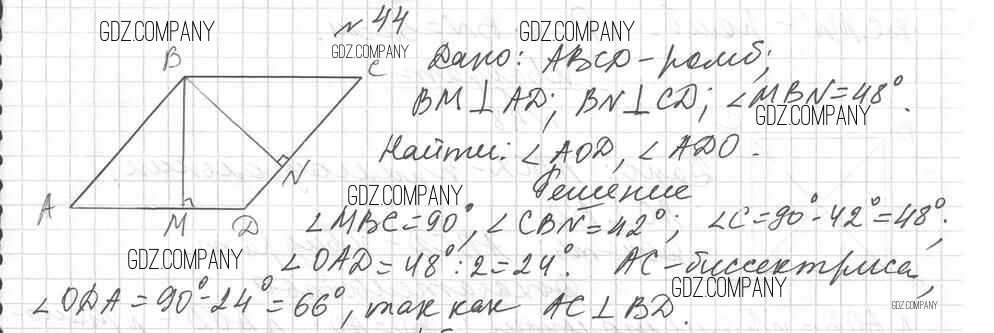 № 44
GDZ.COMPANY
GDZ.COMPANY
GDZ.COMPANY
B
C
Дано: ABCD - ромб;
BM ⊥ AD; BN ⊥ CD; ∠MBN = 48°.
GDZ.COMPANY
Найти: ∠AOD, ∠ADO.
N
GDZ.COMPANY
Решение
A
M
D
∠MBC = 90°, ∠CBN = 42°; ∠C = 90° - 42° = 48°;
GDZ.COMPANY
∠OAD = 48° : 2 = 24°. AC - биссектриса,
GDZ.COMPANY
∠ODA = 90° - 24° = 66°, так как AC ⊥ BD.
GDZ.COMPANY